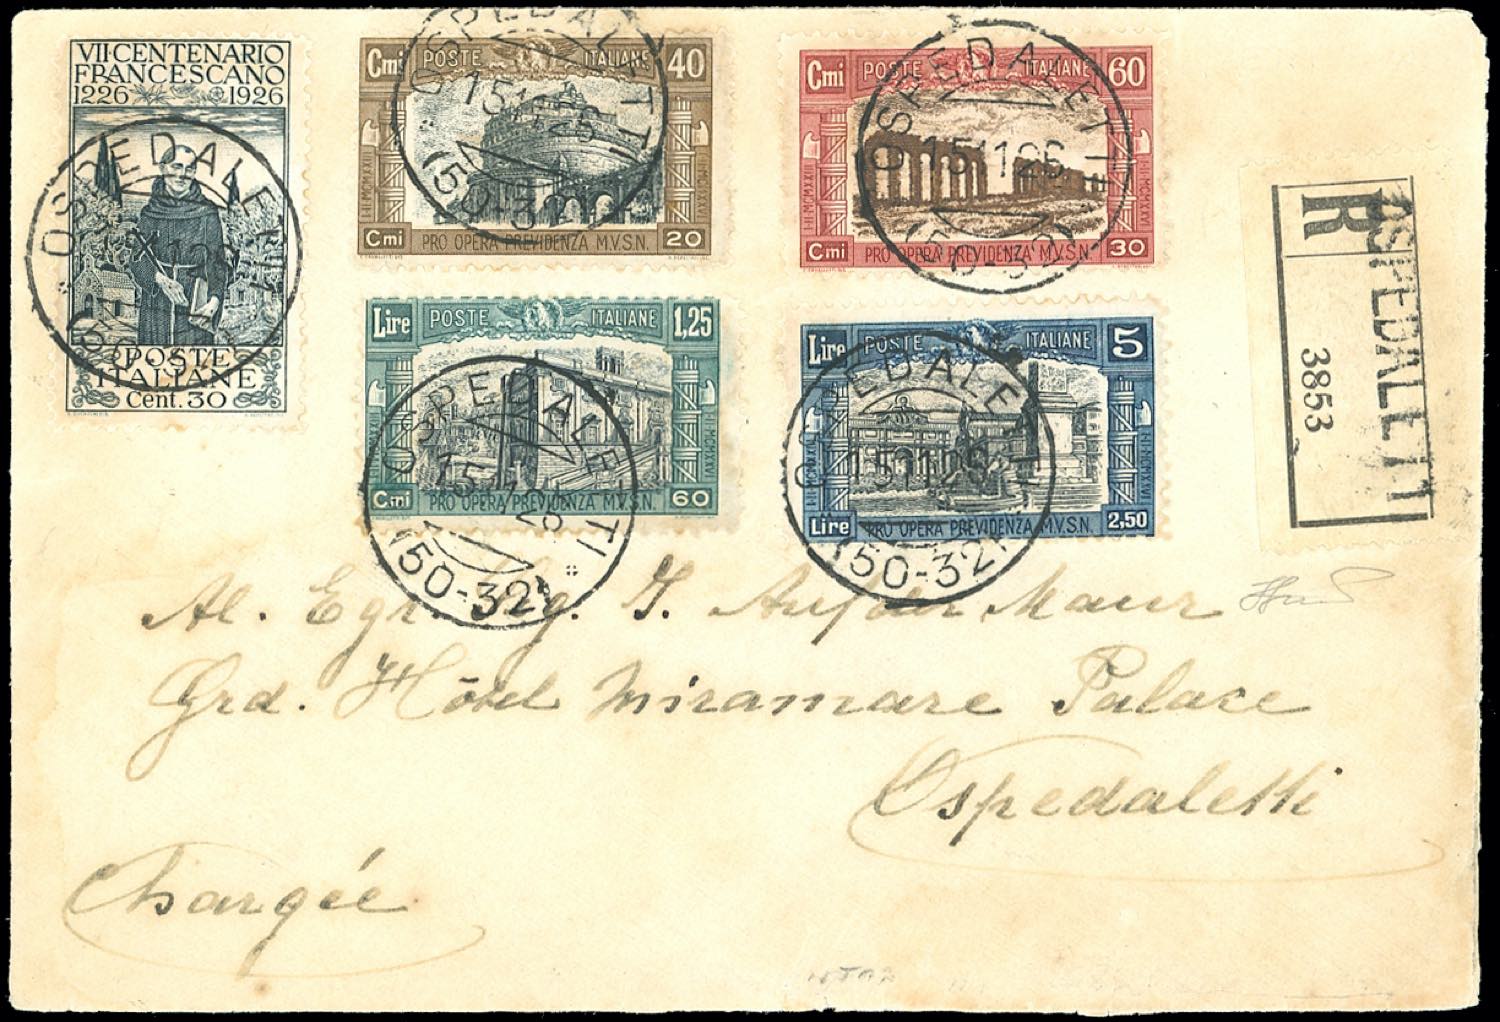 VII·CENTENARIO
FRANCESCANO
1226 1926
POSTE
ITALIANE
Cent. 30
Cmi POSTE ITALIANE 40
Cmi PRO OPERA PREVIDENZA M.V.S.N. 20
Cmi POSTE ITALIANE 60
Cmi PRO OPERA PREVIDENZA M.V.S.N. 30
Lire POSTE ITALIANE 1,25
Cmi PRO OPERA PREVIDENZA M.V.S.N. 60
Lire POSTE ITALIANE 5
Lire PRO OPERA PREVIDENZA M.V.S.N. 2,50
OSPEDALETTI
OSPEDALETTI
15 11 26
(50-32)
OSPEDALETTI
15 11 26
(50-32)
OSPEDALETTI
15 11 26
(50-32)
OSPEDALETTI
15 11 26
(50-32)
R
OSPEDALETTI
3853
Al. Sig. J. Aufder Maur
Grd. Hôtel Miramare Palace
Ospedaletti
Chargée